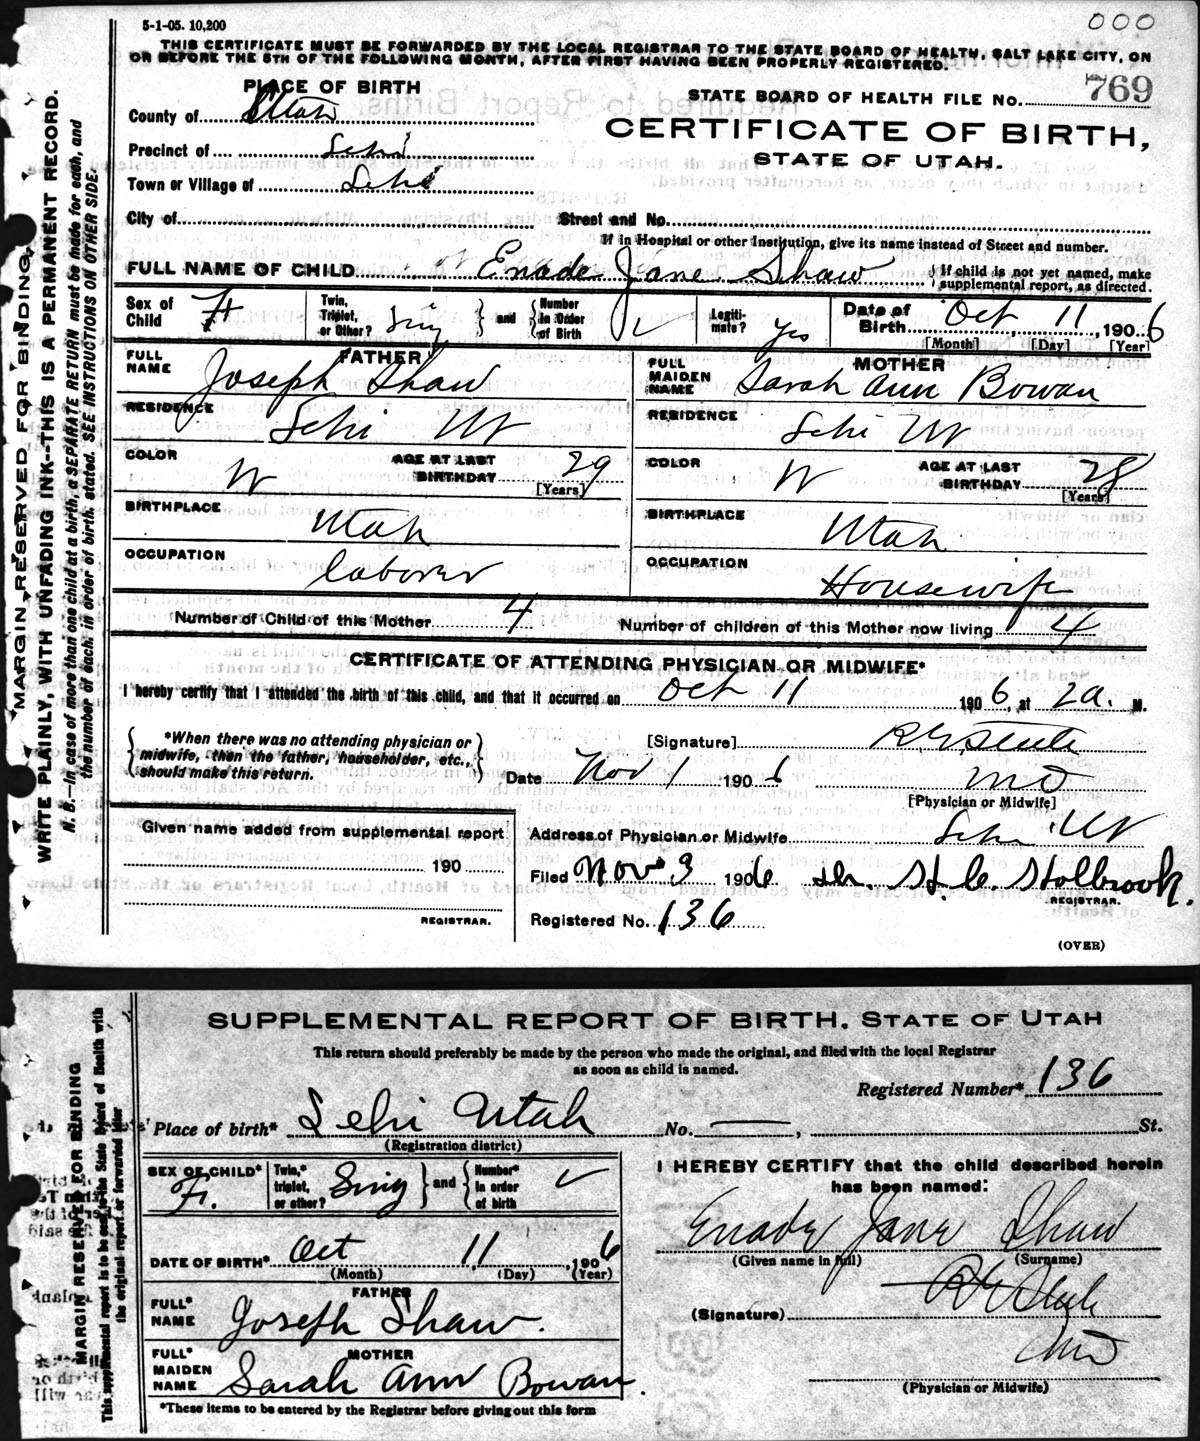 5-1-05. 10,200
000
THIS CERTIFICATE MUST BE FORWARDED BY THE LOCAL REGISTRAR TO THE STATE BOARD OF HEALTH, SALT LAKE CITY, ON
OR BEFORE THE 5TH OF THE FOLLOWING MONTH, AFTER FIRST HAVING BEEN PROPERLY REGISTERED.
PLACE OF BIRTH
STATE BOARD OF HEALTH FILE NO. 769
County of Utah
CERTIFICATE OF BIRTH,
STATE OF UTAH.
Precinct of Lehi
Town or Village of Lehi
City of Street and No.
If in Hospital or other Institution, give its name instead of Street and number.
FULL NAME OF CHILD Enade Jane Shaw { If child is not yet named, make
supplemental report, as directed.
Sex of Child F Twin, Triplet, or Other? Sing } and { Number in Order of Birth ✓ Legiti-mate? yes Date of Birth Oct 11, 1906
[Month] [Day] [Year]
FATHER
FULL NAME Joseph Shaw
RESIDENCE Lehi Ut
COLOR W AGE AT LAST BIRTHDAY 29 [Years]
BIRTHPLACE Utah
OCCUPATION laborer
MOTHER
FULL MAIDEN NAME Sarah Ann Bowan
RESIDENCE Lehi Ut
COLOR W AGE AT LAST BIRTHDAY 28 [Years]
BIRTHPLACE Utah
OCCUPATION Housewife
Number of Child of this Mother 4 Number of children of this Mother now living 4
CERTIFICATE OF ATTENDING PHYSICIAN OR MIDWIFE*
I hereby certify that I attended the birth of this child, and that it occurred on Oct 11 1906, at 2a. M.
{ *When there was no attending physician or
midwife, then the father, householder, etc.,
should make this return. }
[Signature] R E Steele
Date Nov 1 1906 MD
[Physician or Midwife]
Given name added from supplemental report
190
REGISTRAR.
Address of Physician or Midwife Lehi Ut
Filed Nov 3 1906 H. C. Holbrook.
REGISTRAR.
Registered No. 136
(OVER)
MARGIN RESERVED FOR BINDING.
WRITE PLAINLY, WITH UNFADING INK--THIS IS A PERMANENT RECORD.
N. B.—In case of more than one child at a birth, a SEPARATE RETURN must be made for each, and
the number of each, in order of birth, stated. SEE INSTRUCTIONS ON OTHER SIDE.
SUPPLEMENTAL REPORT OF BIRTH. STATE OF UTAH
This return should preferably be made by the person who made the original, and filed with the local Registrar
as soon as child is named.
Registered Number* 136
Place of birth* Lehi Utah No. ——, St.
(Registration district)
SEX OF CHILD* F. Twin,* triplet, or other? Sing } and { Number* in order of birth ✓
DATE OF BIRTH* Oct 11 1906
(Month) (Day) (Year)
FATHER
FULL* NAME Joseph Shaw.
MOTHER
FULL* MAIDEN NAME Sarah Ann Bowan.
*These items to be entered by the Registrar before giving out this form
I HEREBY CERTIFY that the child described herein
has been named:
Enade Jane Shaw
(Given name in full) (Surname)
(Signature) R E Steele
MD
(Physician or Midwife)
MARGIN RESERVED FOR BINDING
This supplemental report is to be sent to the State Board of Health with
the original report or forwarded later